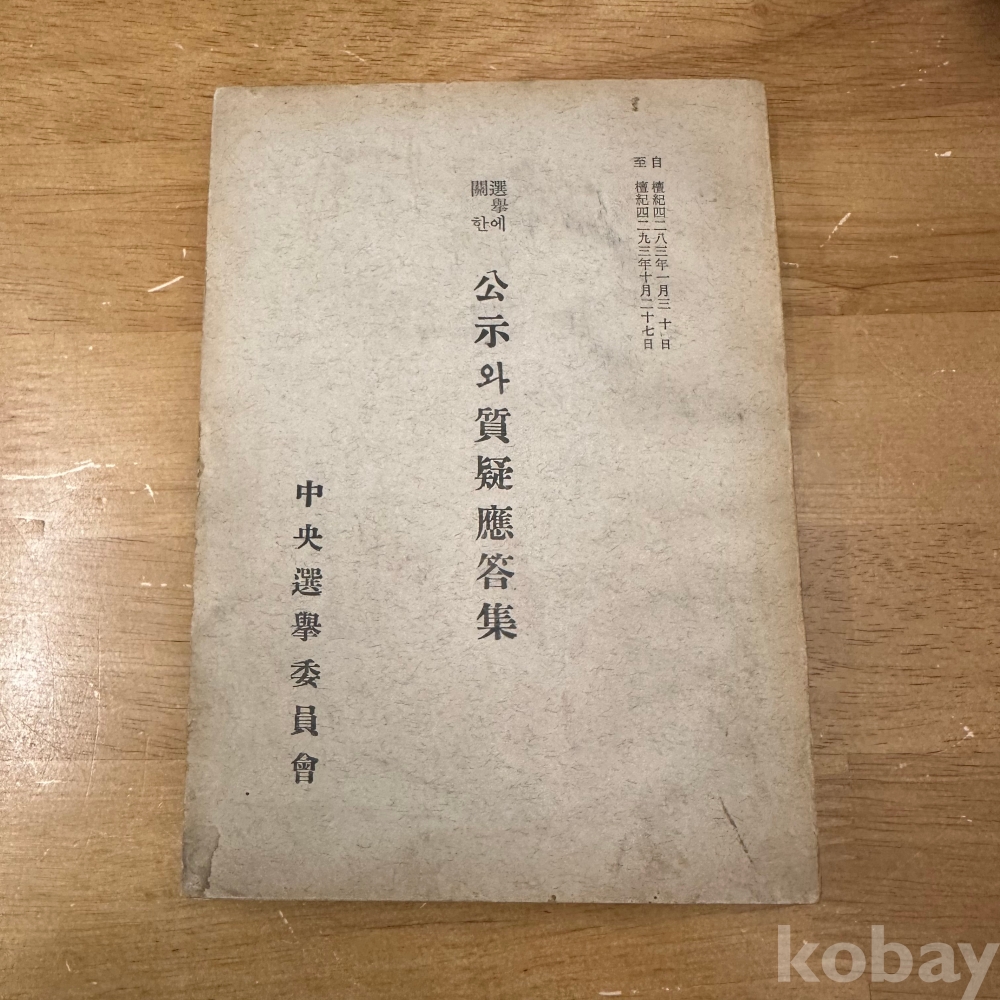 自 檀紀四二八三年一月三十日
至 檀紀四二九三年十月二十七日
選擧에
關한
公示와質疑應答集
中央選擧委員會
kobay